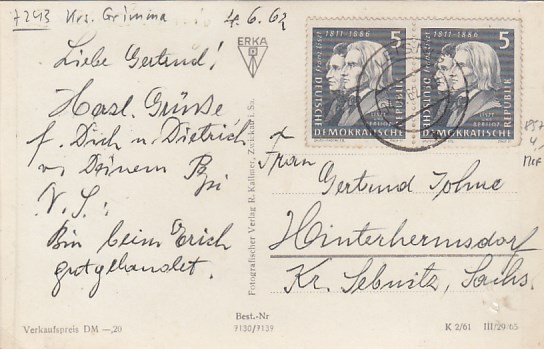 7243 Krs. Grimma 4.6.62
Liebe Gertrud!
Herzl. Grüße
f. Dich u. Dietrich
v. Deinem
N. S.:
Bin beim Erich
gut gelandet.
ERKA
Fotografischer Verlag R. Kallmer, Zwickau i. Sa.
1811-1886 Franz Liszt 5
DEUTSCHE
DEMOKRATISCHE
REPUBLIK
LISZT
BERLIOZ
1811-1886 Franz Liszt 5
DEUTSCHE
DEMOKRATISCHE
REPUBLIK
LISZT
BERLIOZ
Frau
Gertrud Johne
Hinterhermsdorf
Kr. Sebnitz, Sachs.
Verkaufspreis DM —,20
Best.-Nr
9130/9139
K 2/61 III/29/65